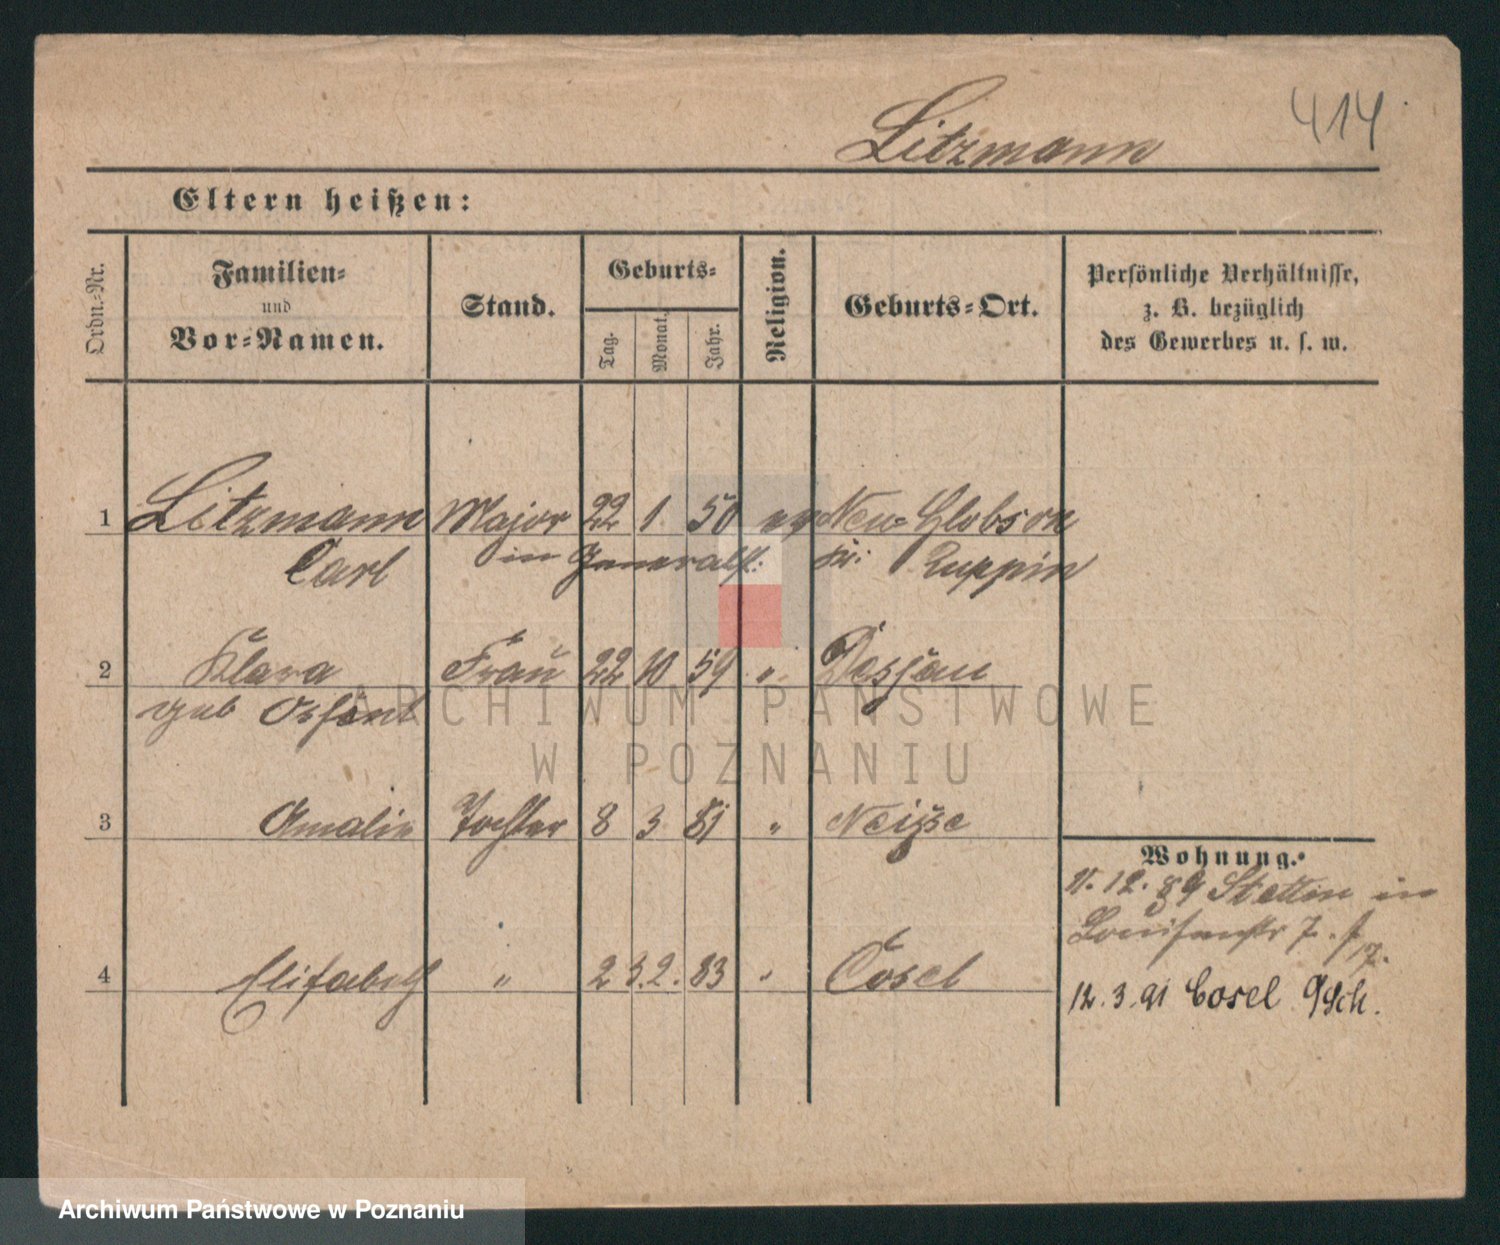 414
Litzmann
Eltern heißen:
Ordn.-Nr.
Familien-
und
Vor-Namen.
Stand.
Geburts-
Tag.
Monat.
Jahr.
Religion.
Geburts-Ort.
Persönliche Verhältnisse,
z. B. bezüglich
des Gewerbes u. s. w.
1 Litzmann Major 22 1 50 ev Neu-Globsow
Carl in Generalst. Kr: Ruppin
2 Klara Frau 22 10 59 " Dessau
geb
3 Amalie Tochter 8 3 81 " Neiße
4 Elisabeth " 2 2. 83 " Cosel
Wohnung.
11. 12. 89 Stettin in
Louisenstr 7.
12. 3. 91 Cosel
ARCHIWUM PAŃSTWOWE
W POZNANIU
Archiwum Państwowe w Poznaniu